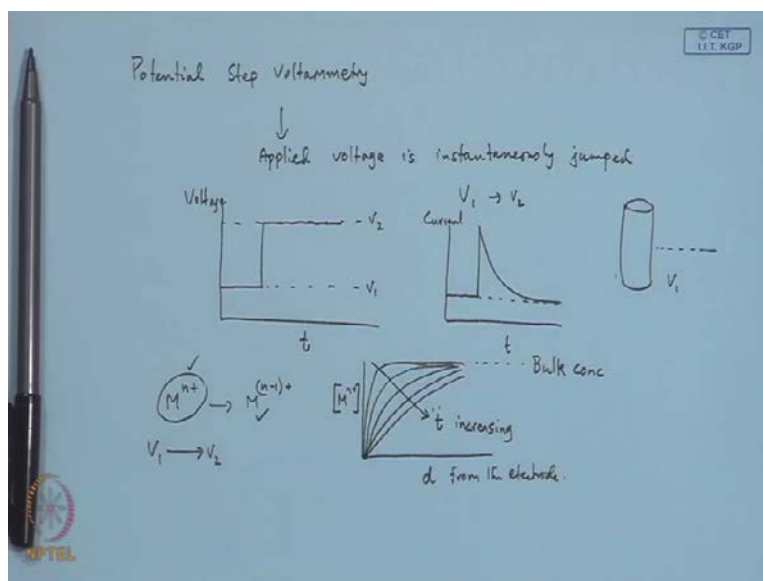 © CET
I.I.T. KGP
Potential Step Voltammetry
Applied voltage is instantaneously jumped
V₁ → V₂
Voltage
V₂
V₁
t
Current
t
V₁
Mⁿ⁺ → M⁽ⁿ⁻¹⁾⁺
V₁ → V₂
[Mⁿ⁺]
Bulk conc
t increasing
d from the electrode.
NPTEL